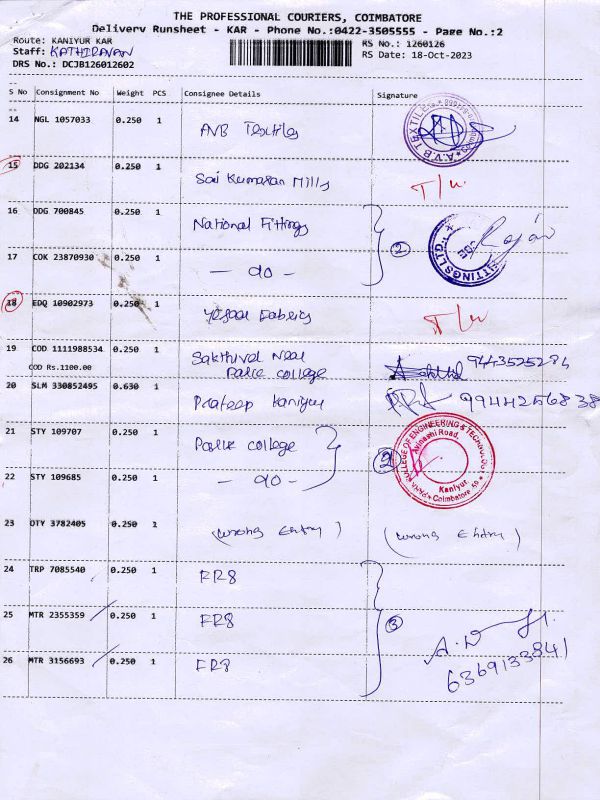 THE PROFESSIONAL COURIERS, COIMBATORE
Delivery Runsheet - KAR - Phone No.:0422-3505555 - Page No.:2
Route: KANIYUR KAR
RS No.: 1260126
Staff: KATHIRAVAN
RS Date: 18-Oct-2023
DRS No.: DCJB126012602
S No Consignment No Weight PCS Consignee Details Signature
14 NGL 1057033 0.250 1 AVB Textiles
A.V.B TEXTILE
15 DDG 202134 0.250 1 Sai Kumaran Mills
16 DDG 700845 0.250 1 National Fittings
2
FITTINGS LTD.
17 COK 23870930 0.250 1 - do -
18 EDQ 10902973 0.250 1 Fabrics
19 COD 1111988534 0.250 1 Sakthivel Near 9443525284
COD Rs.1100.00 Police college
20 SLM 330852495 0.630 1 Prateep Kaniyur 9944256838
21 STY 109707 0.250 1 Police college
COLLEGE OF ENGINEERING & TECHNOLOGY
Avinashi Road,
Kaniyur
Coimbatore 59
22 STY 109685 0.250 1 - do -
23 OTY 3782405 0.250 1 (wrong Entry) (wrong Entry)
24 TRP 7085540 0.250 1 RR8
25 MTR 2355359 0.250 1 RR8
3
26 MTR 3156693 0.250 1 RR8
6369133841